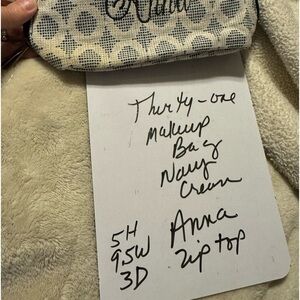 Anna
Thirty-one
Makeup
Bag
Navy
Cream
5H Anna
9.5W Zip top
3D